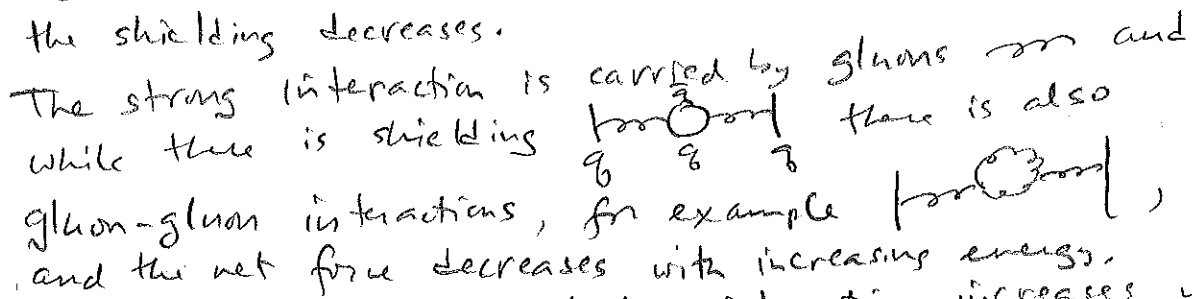 the shielding decreases.
The strong interaction is carried by gluons and
while there is shielding q q̄ q q there is also
gluon-gluon interactions, for example ,
and the net force decreases with increasing energy.
increases